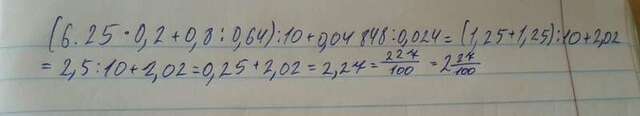 (6.25 · 0,2 + 0,8 : 0,64) : 10 + 0,04 848 : 0,024 = (1,25 + 1,25) : 10 + 2,02
= 2,5 : 10 + 2,02 = 0,25 + 2,02 = 2,27 = 227/100 = 2 27/100